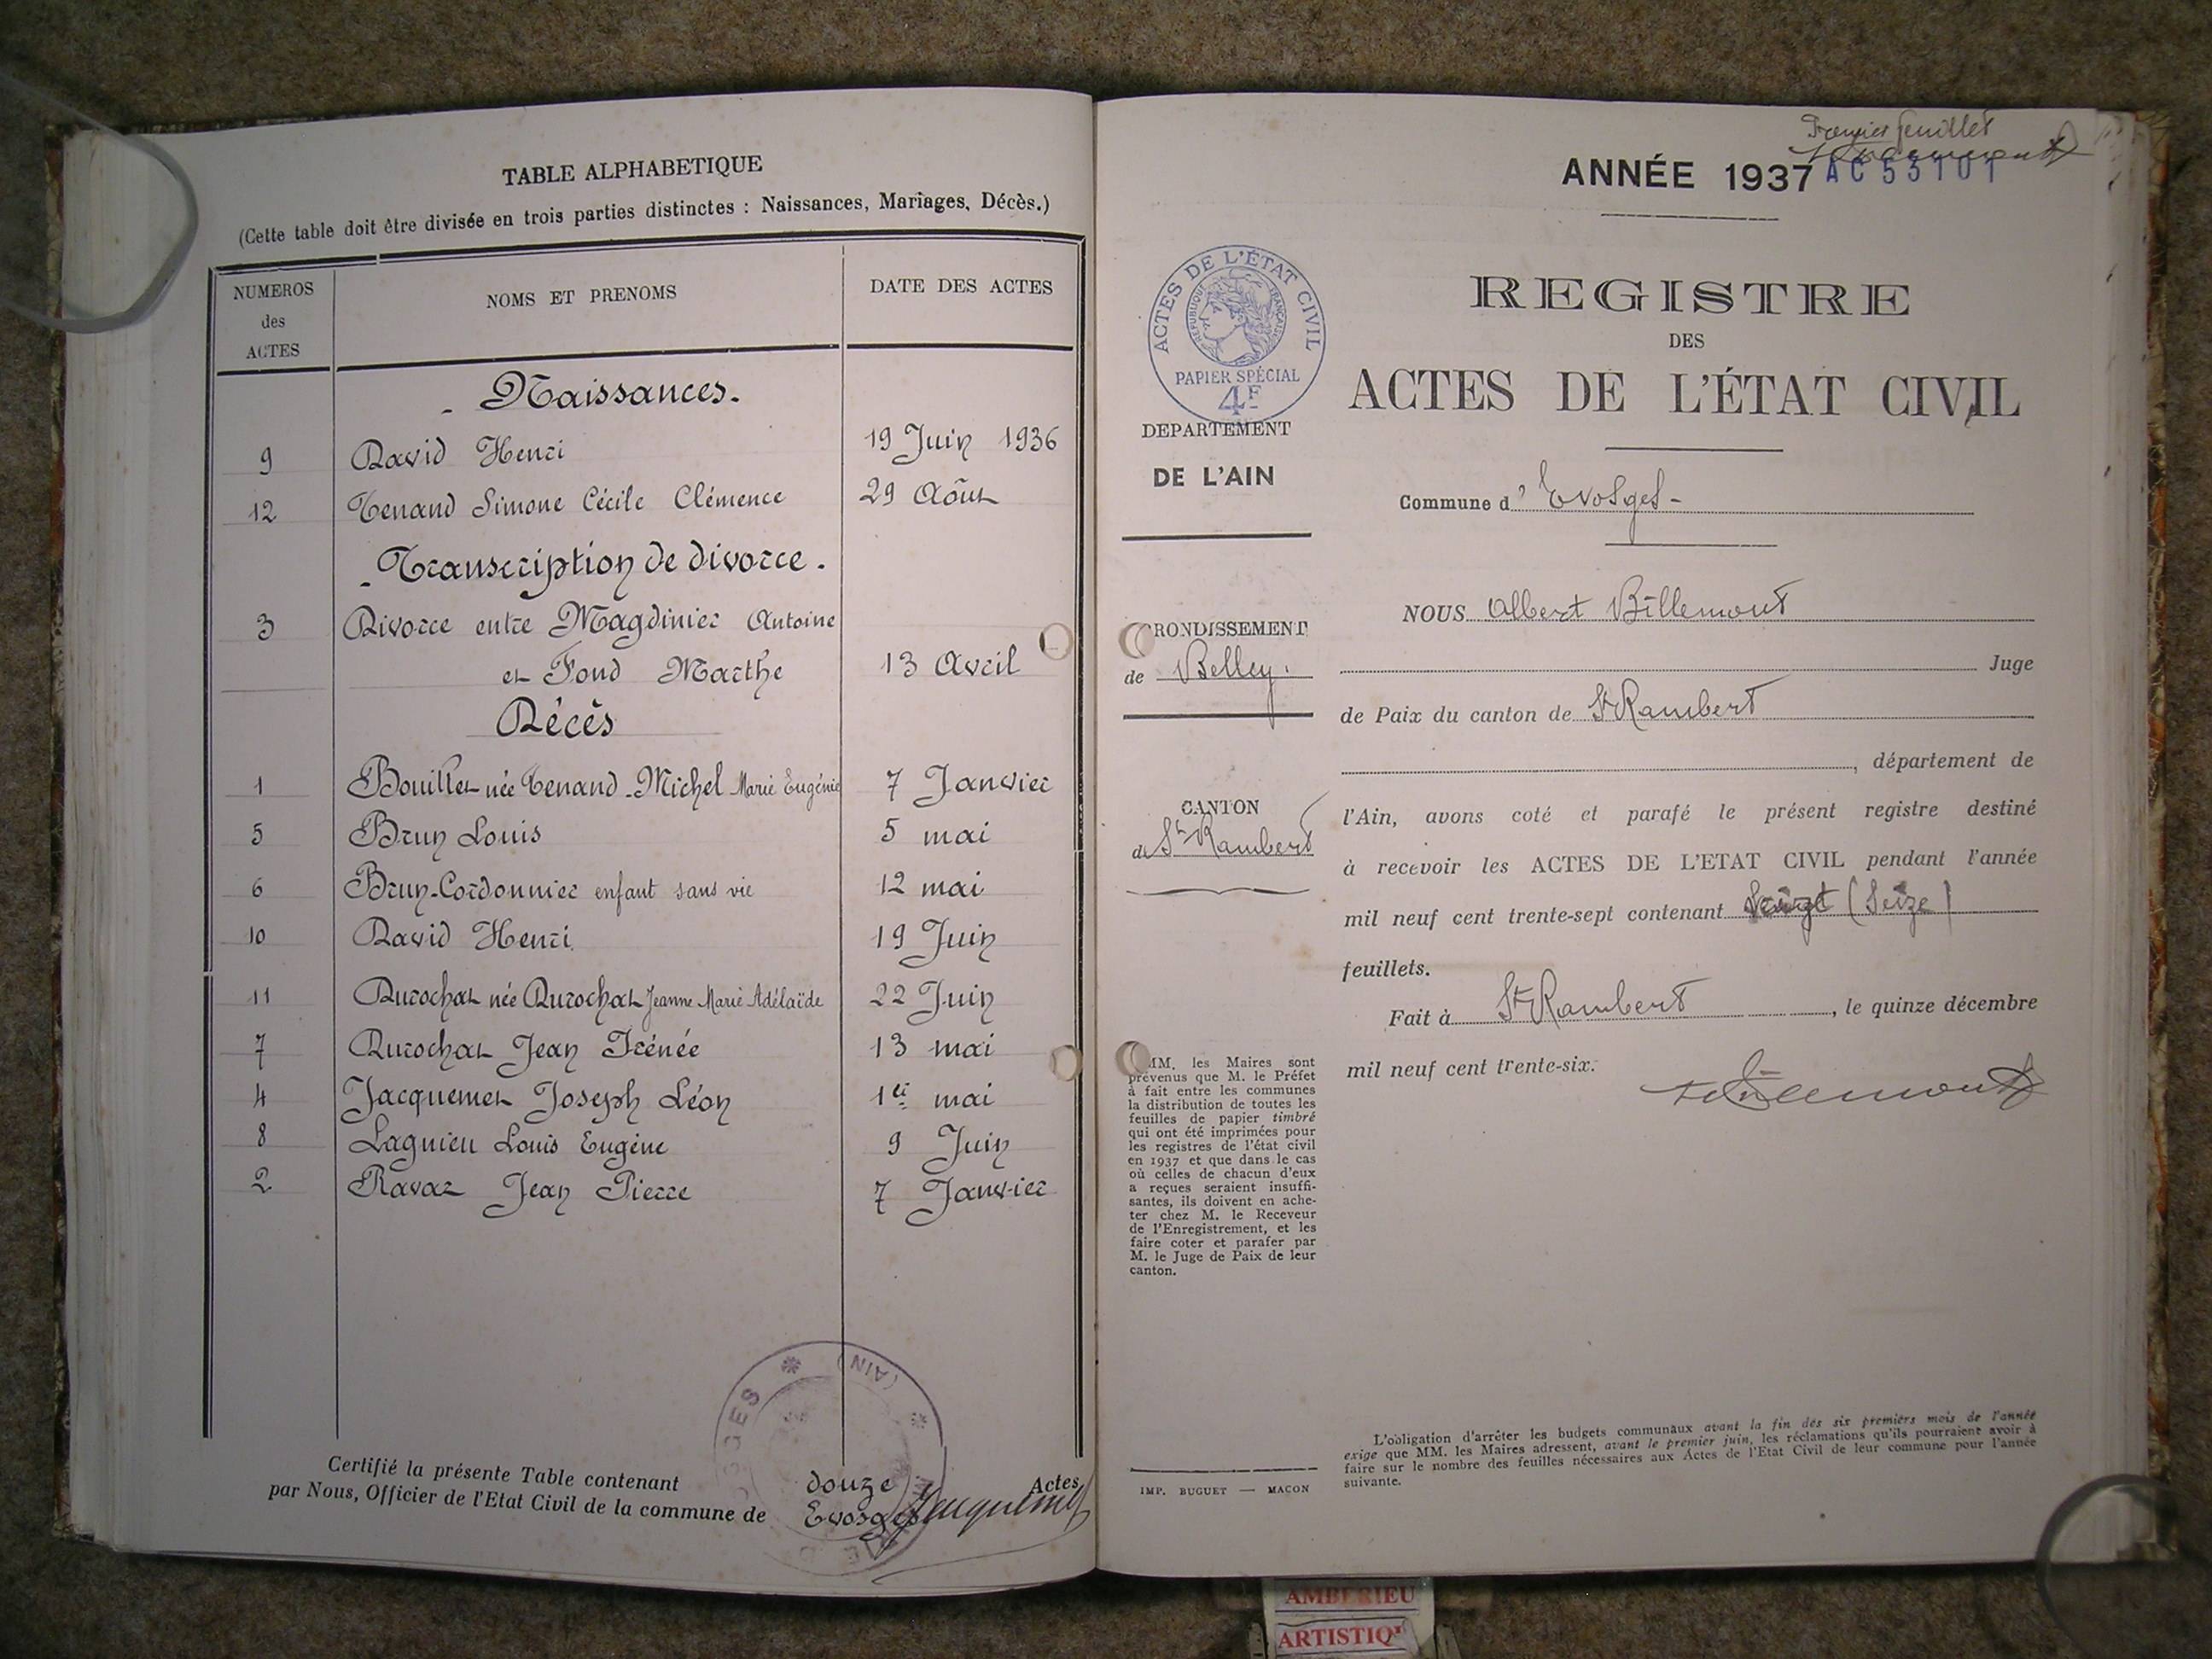 TABLE ALPHABETIQUE
(Cette table doit être divisée en trois parties distinctes : Naissances, Mariages, Décès.)
NUMEROS des ACTES NOMS ET PRENOMS DATE DES ACTES
- Naissances -
9 David Henri 19 Juin 1936
12 Tenand Simone Cécile Clémence 29 Août
- Transcription de divorce -
3 Divorce entre Magdinier Antoine
et Fond Marthe 13 Avril
Décès
1 Bouillet née Tenand-Michel Marie Eugénie 7 Janvier
5 Brun Louis 5 mai
6 Brun-Cordonnier enfant sans vie 12 mai
10 David Henri 19 Juin
11 Durochat née Durochat Jeanne Marie Adélaïde 22 Juin
7 Durochat Jean Irénée 13 mai
4 Jacquemet Joseph Léon 1er mai
8 Lagnieu Louis Eugène 9 Juin
2 Ravaz Jean Pierre 7 Janvier
Certifié la présente Table contenant douze Actes
par Nous, Officier de l'Etat Civil de la commune de Evosges Jacquemet
(AIN)
Premier feuillet
ANNÉE 1937 AC 53101
ACTES DE L'ÉTAT CIVIL
RÉPUBLIQUE FRANÇAISE
PAPIER SPÉCIAL
4F
DEPARTEMENT
DE L'AIN
RONDISSEMENT
de Belley.
CANTON
de St Rambert
MM. les Maires sont
prévenus que M. le Préfet
à fait entre les communes
la distribution de toutes les
feuilles de papier timbré
qui ont été imprimées pour
les registres de l'état civil
en 1937 et que dans le cas
où celles de chacun d'eux
a reçues seraient insuffi-
santes, ils doivent en ache-
ter chez M. le Receveur
de l'Enregistrement, et les
faire coter et parafer par
M. le Juge de Paix de leur
canton.
IMP. BUGUET — MACON
REGISTRE
DES
ACTES DE L'ÉTAT CIVIL
Commune d'Evosges-
NOUS Albert Billemont
Juge
de Paix du canton de St Rambert
, département de
l'Ain, avons coté et parafé le présent registre destiné
à recevoir les ACTES DE L'ETAT CIVIL pendant l'année
mil neuf cent trente-sept contenant (Seize)
feuillets.
Fait à St Rambert, le quinze décembre
mil neuf cent trente-six.
Billemont
L'obligation d'arrêter les budgets communaux avant la fin des six premiers mois de l'année
exige que MM. les Maires adressent, avant le premier juin, les réclamations qu'ils pourraient avoir à
faire sur le nombre des feuilles nécessaires aux Actes de l'Etat Civil de leur commune pour l'année
suivante.
AMBERIEU
ARTISTIQ